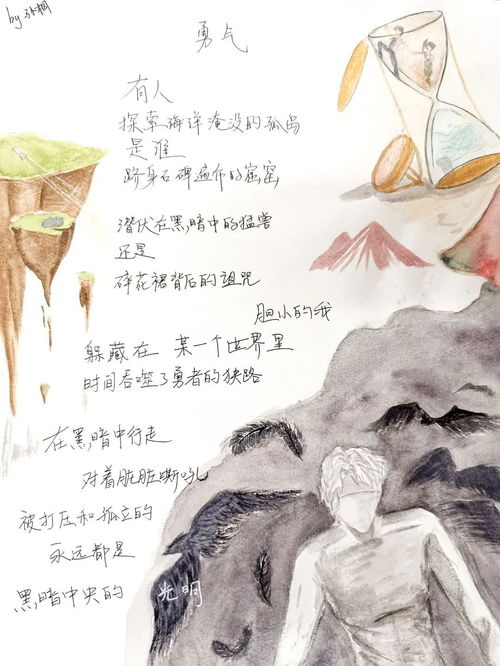 by 张桐
勇气
有人
探索海洋淹没的孤岛
是谁
跻身石碑遍布的窟窑
潜伏在黑暗中的猛兽
还是
碎花裙背后的诅咒
胆小的我
躲藏在 某一个世界里
时间吞噬了勇者的狭路
在黑暗中行走
对着肮脏嘶吼
被打压和孤立的
永远都是
黑暗中央的 光明